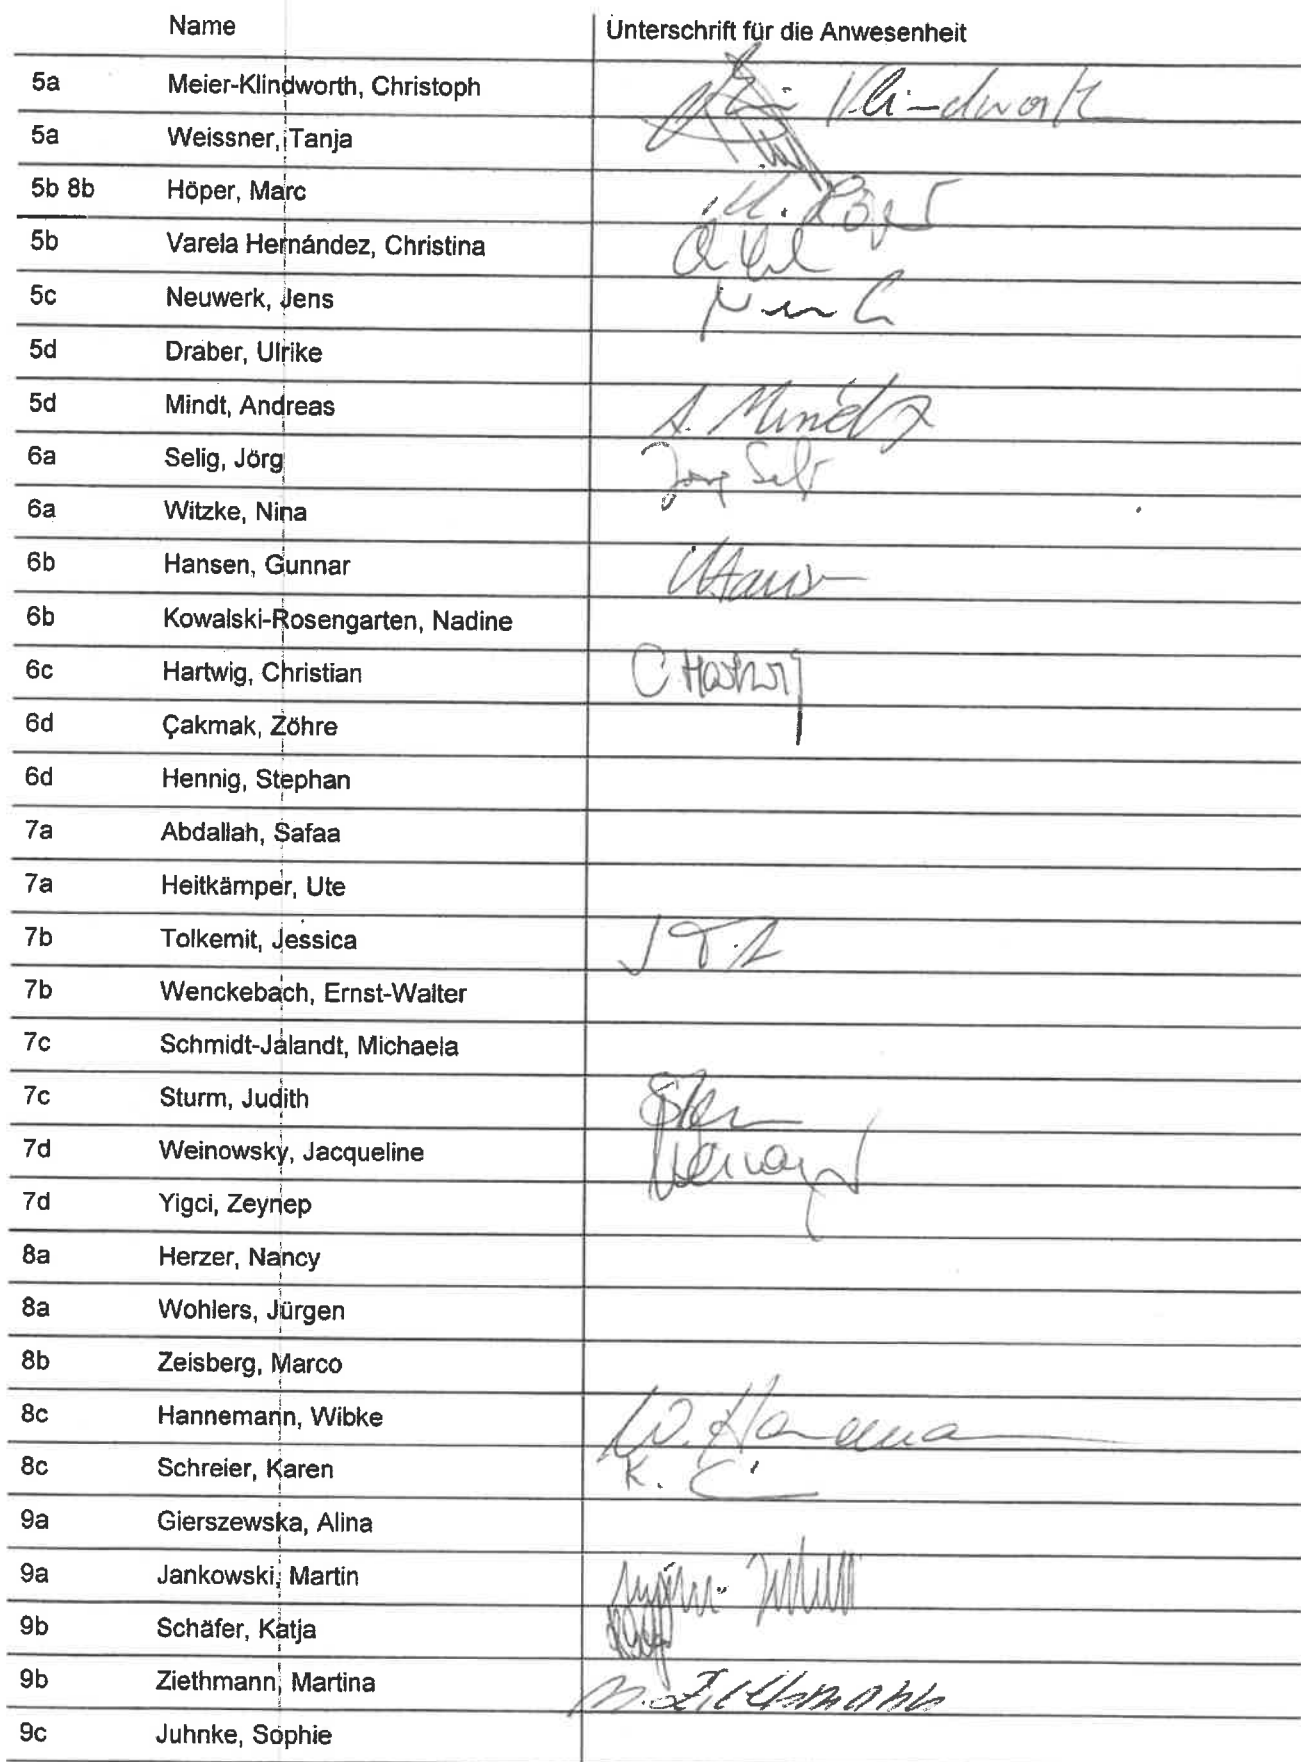 Name Unterschrift für die Anwesenheit
5a Meier-Klindworth, Christoph Klindworth
5a Weissner, Tanja
5b 8b Höper, Marc M. Höper
5b Varela Hernández, Christina
5c Neuwerk, Jens
5d Draber, Ulrike
5d Mindt, Andreas A. Mindt
6a Selig, Jörg Jörg Selig
6a Witzke, Nina
6b Hansen, Gunnar
6b Kowalski-Rosengarten, Nadine
6c Hartwig, Christian C Hartwig
6d Çakmak, Zöhre
6d Hennig, Stephan
7a Abdallah, Safaa
7a Heitkämper, Ute
7b Tolkemit, Jessica
7b Wenckebach, Ernst-Walter
7c Schmidt-Jalandt, Michaela
7c Sturm, Judith
7d Weinowsky, Jacqueline
7d Yigci, Zeynep
8a Herzer, Nancy
8a Wohlers, Jürgen
8b Zeisberg, Marco
8c Hannemann, Wibke W. Hannemann
8c Schreier, Karen K.
9a Gierszewska, Alina
9a Jankowski, Martin
9b Schäfer, Katja
9b Ziethmann, Martina M. Ziethmann
9c Juhnke, Sophie